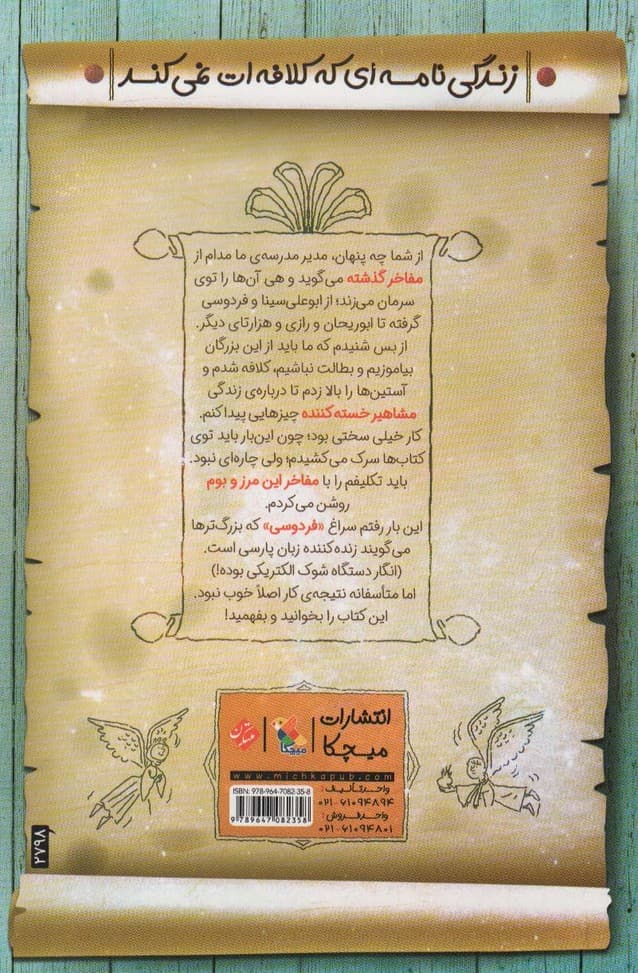 زندگی‌نامه‌ای که کلافه‌ات نمی‌کند
از شما چه پنهان، مدیر مدرسه‌ی ما مدام از
مفاخر گذشته می‌گوید و هی آن‌ها را توی
سرمان می‌زند؛ از ابوعلی‌سینا و فردوسی
گرفته تا ابوریحان و رازی و هزارتای دیگر.
از بس شنیدم که ما باید از این بزرگان
بیاموزیم و بطالت نباشیم، کلافه شدم و
آستین‌ها را بالا زدم تا درباره‌ی زندگی
مشاهیر خسته‌کننده چیزهایی پیدا کنم.
کار خیلی سختی بود؛ چون این‌بار باید توی
کتاب‌ها سرک می‌کشیدم؛ ولی چاره‌ای نبود.
باید تکلیفم را با مفاخر این مرز و بوم
روشن می‌کردم.
این بار رفتم سراغ «فردوسی» که بزرگ‌ترها
می‌گویند زنده‌کننده زبان پارسی است.
(انگار دستگاه شوک الکتریکی بوده!)
اما متأسفانه نتیجه‌ی کار اصلاً خوب نبود.
این کتاب را بخوانید و بفهمید!
انتشارات
میچکا
میچکا
مبتکران
www.michkapub.com
ISBN: 978-964-7082-35-8
9 789647 082358
واحد تألیف:
۰۲۱-۶۱۰۹۴۸۹۴
واحد فروش:
۰۲۱-۶۱۰۹۴۸۰۱
۲۷۹۸